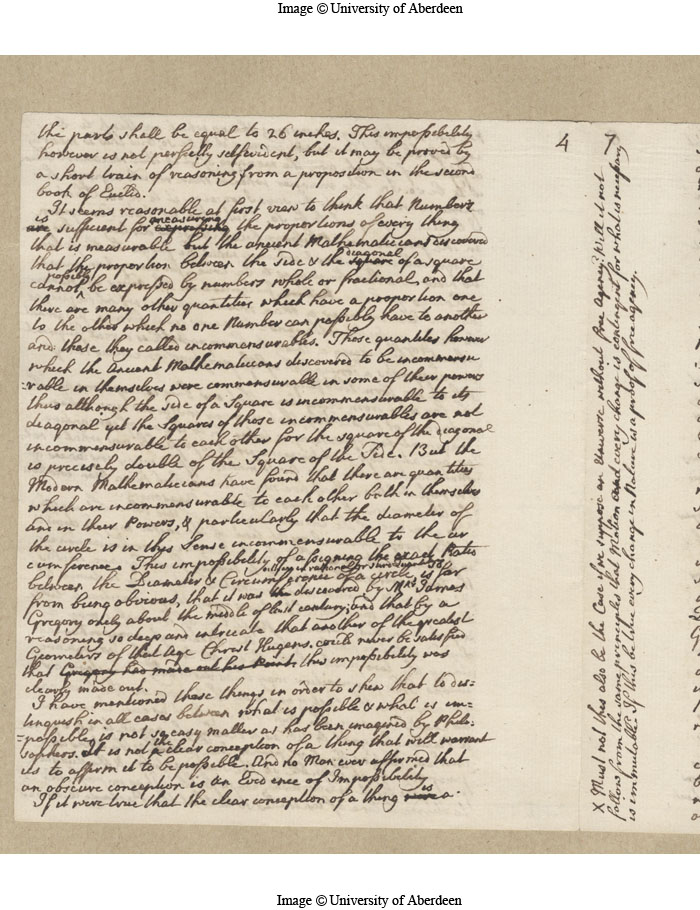 Image © University of Aberdeen
the parts shall be equal to 26 inches. This impossibility
however is not perfectly selfevident, but it may be proved by
a short train of reasoning from a proposition in the second
book of Euclid.
It seems reasonable at first view to think that Numbers
is measuring
are sufficient for expressing the proportions of every thing
that is measurable but the ancient Mathematicians discovered
diagonal
that the proportion between the Side & the square of a square
possibly
cannot be expressed by numbers whole or fractional, and that
there are many other quantities which have a proportion one
to the other which no one Number can possibly have to another
and these they called incommensurables. Those quantities however
which the Ancient Mathematicians discovered to be incommensu
rable in themselves were commensurable in some of their powers
thus although the side of a Square is incommensurable to its
diagonal yet the Squares of those incommensurables are not
incommensurable to each other for the square of the diagonal
is precisely double of the Square of the Side. But the
Modern Mathematicians have found that there are quantities
which are incommensurable to each other both in themselves
and in their Powers, & particularly that the diameter of
the circle is in this Sense incommensurable to the cir
cumference. This impossibility of assigning the exact Ratio
between the Diameter & Circumference of a circle is far
from being obvious, that it was discovered by Mr James
Gregory only about the middle of last century, and that by a
reasoning so deep and intricate that another of the greatest
Geometers of that age Christ Hugens, could never be satisfied
that Gregory had made out his Point. this impossibility was
clearly made out.
I have mentioned these things in order to shew that to dis-
tinguish in all cases between what is possible & what is im-
possible, is not so easy matter as has been imagined by Philo-
sophers. It is not the clear conception of a thing that will warrant
us to affirm it to be possible. And no Man ever affirmed that
an obscure conception is an Evidence of Impossibility
is
If it were true that the clear conception of a thing were a
4
7
X Must not this also be the Case if we suppose an Universe without free agency? Will it not
follow from the same principles that Motion and every change is contingent for what is necessary
is immutable. If this be true every change in Nature is a proof of free agency.
Image © University of Aberdeen